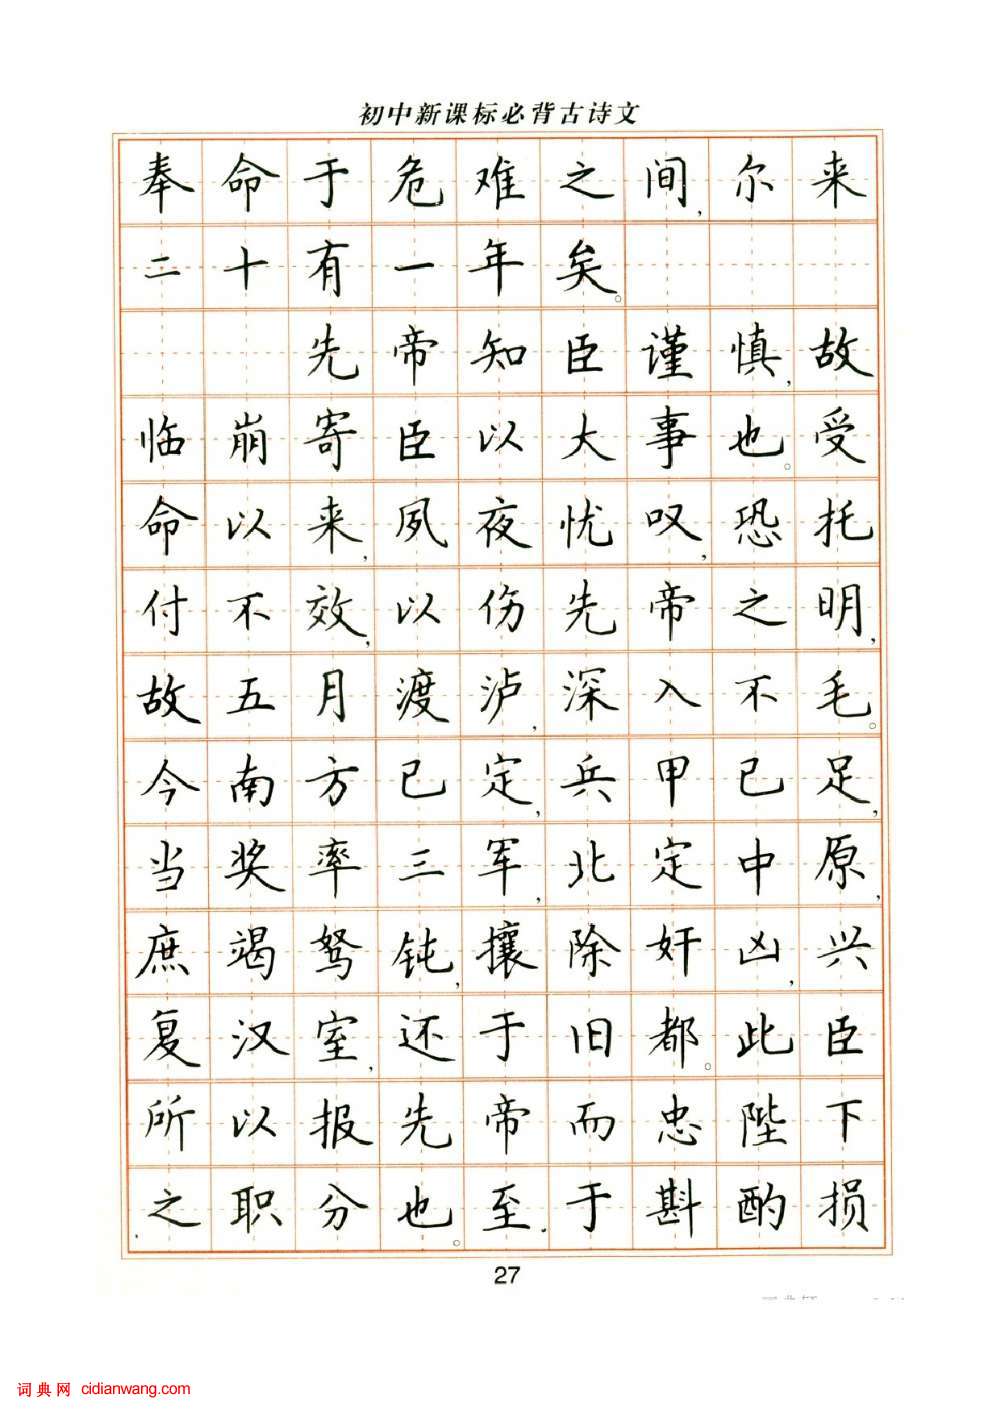 初中新课标必背古诗文
奉命于危难之间,尔来
二十有一年矣。
先帝知臣谨慎,故
临崩寄臣以大事也。受
命以来,夙夜忧叹,恐托
付不效,以伤先帝之明,
故五月渡泸,深入不毛。
今南方已定,兵甲已足,
当奖率三军,北定中原,
庶竭驽钝,攘除奸凶,兴
复汉室,还于旧都。此臣
所以报先帝而忠陛下
之职分也。至于斟酌损
27
词典网 cidianwang.com